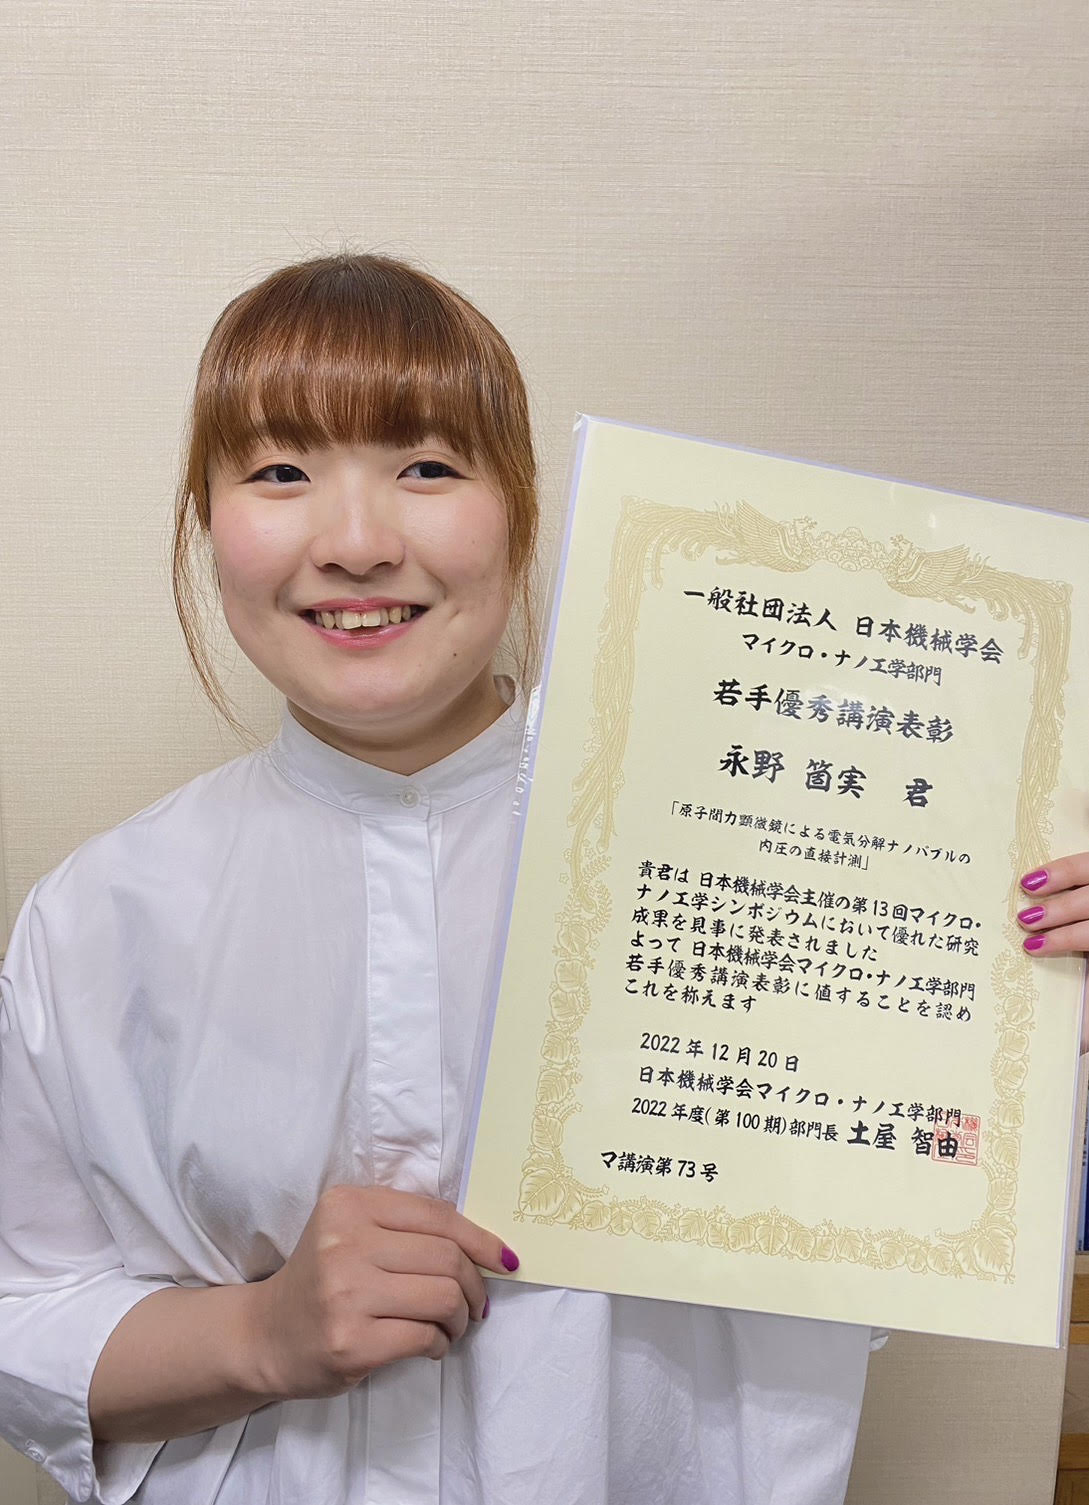 一般社団法人 日本機械学会
マイクロ・ナノ工学部門
若手優秀講演表彰
永野 箇実 君
「原子間力顕微鏡による電気分解ナノバブルの
内圧の直接計測」
貴君は 日本機械学会主催の第13回マイクロ・
ナノ工学シンポジウムにおいて優れた研究
成果を見事に発表されました
よって 日本機械学会マイクロ・ナノ工学部門
若手優秀講演表彰に値することを認め
これを称えます
2022年12月20日
日本機械学会マイクロ・ナノ工学部門
2022年度(第100期)部門長 土屋 智由
マ講演第73号